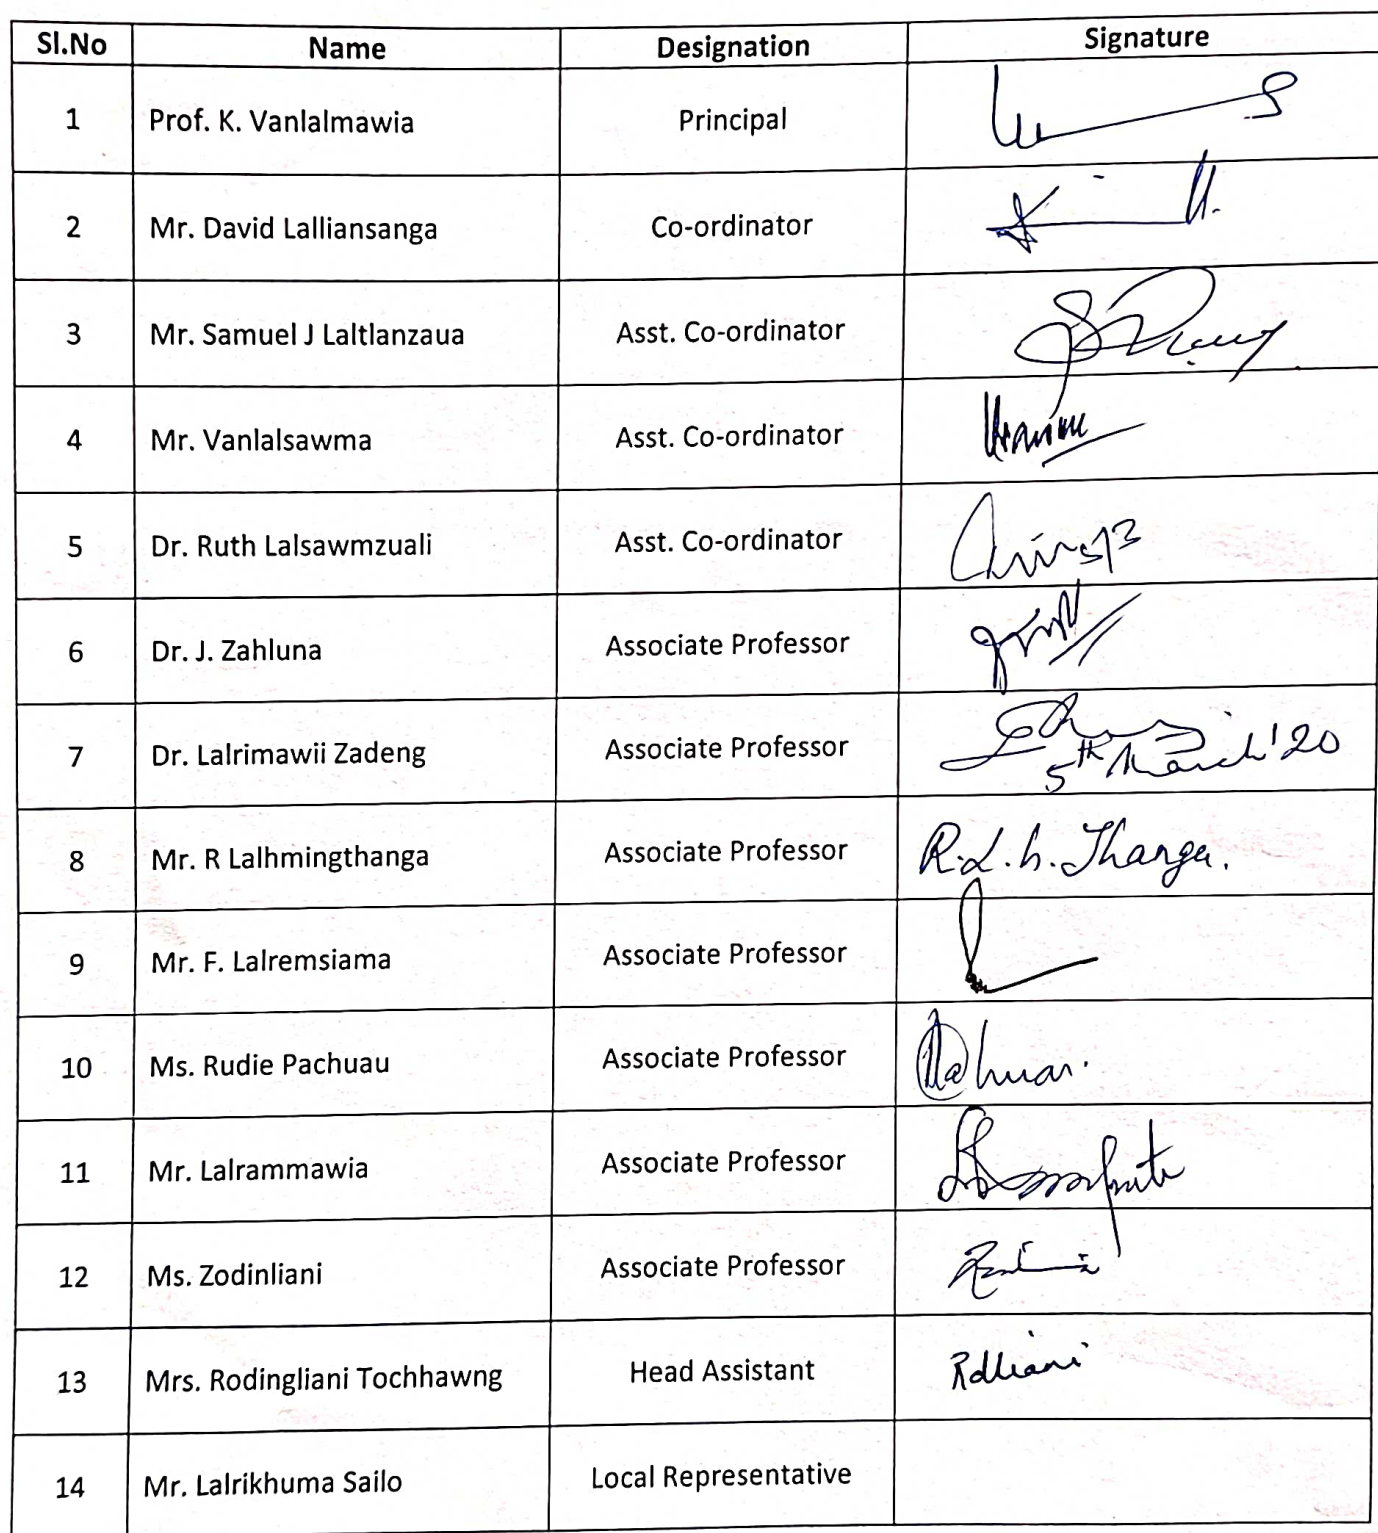 Sl.No Name Designation Signature
1 Prof. K. Vanlalmawia Principal
2 Mr. David Lalliansanga Co-ordinator
3 Mr. Samuel J Laltlanzaua Asst. Co-ordinator
4 Mr. Vanlalsawma Asst. Co-ordinator
5 Dr. Ruth Lalsawmzuali Asst. Co-ordinator
6 Dr. J. Zahluna Associate Professor
7 Dr. Lalrimawii Zadeng Associate Professor
5th March '20
8 Mr. R Lalhmingthanga Associate Professor R.L.h.Thanga.
9 Mr. F. Lalremsiama Associate Professor
10 Ms. Rudie Pachuau Associate Professor
11 Mr. Lalrammawia Associate Professor
12 Ms. Zodinliani Associate Professor
13 Mrs. Rodingliani Tochhawng Head Assistant
14 Mr. Lalrikhuma Sailo Local Representative